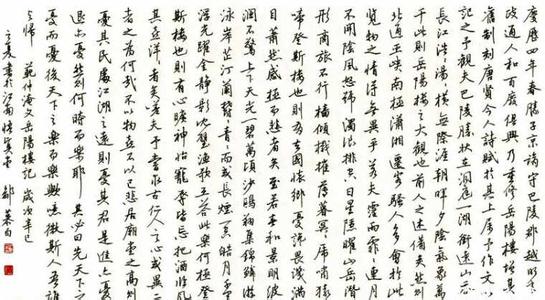 慶曆四年春滕子京謫守巴陵郡越明年
政通人和百廢俱興乃重修岳陽樓增其
舊制刻唐賢今人詩賦於其上屬予作文以
記之予觀夫巴陵勝狀在洞庭一湖銜遠山吞
長江浩浩湯湯橫無際涯朝暉夕陰氣象萬
千此則岳陽樓之大觀也前人之述備矣然則
北通巫峽南極瀟湘遷客騷人多會於此
覽物之情得無異乎若夫霪雨霏霏連月
不開陰風怒號濁浪排空日星隱曜山岳潛
形商旅不行檣傾楫摧薄暮冥冥虎嘯猿
啼登斯樓也則有去國懷鄉憂讒畏譏滿
目蕭然感極而悲者矣至若春和景明波
瀾不驚上下天光一碧萬頃沙鷗翔集錦鱗游
泳岸芷汀蘭郁郁青青而或長煙一空皓月千里
浮光躍金靜影沉璧漁歌互答此樂何極登
斯樓也則有心曠神怡寵辱皆忘把酒臨風
其喜洋洋者矣嗟夫予嘗求古仁人之心或異二
者之為何哉不以物喜不以己悲居廟堂之高則
憂其民處江湖之遠則憂其君是進亦憂
退亦憂然則何時而樂耶其必曰先天下之
憂而憂後天下之樂而樂歟噫微斯人吾誰
與歸 范仲淹文岳陽樓記 歲次辛巳
之夏書於江南 鄒慕白